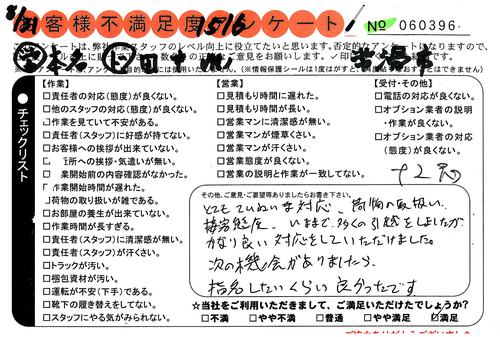 お客様不満足度1516アンケート!
No 060396
8/31
このアンケートは、弊社スタッフのレベル向上に役立てたいと思います。否定的なアンケートになりますので、
チェックリスト
【作業】
□責任者の対応(態度)が良くない。
□他のスタッフの対応(態度)が良くない。
□作業を見ていて不安がある。
□責任者(スタッフ)に好感が持てない。
□お客様への挨拶が出来ていない。
所への挨拶・気遣いが無い。
業開始前の内容確認がなかった。
作業開始時間が遅れた。
荷物の取り扱いが雑である。
□お部屋の養生が出来ていない。
□作業時間が長すぎる。
□責任者(スタッフ)に清潔感が無い。
□責任者(スタッフ)が汗くさい。
□トラックが汚い。
□梱包資材が汚い。
□運転が不安(下手)である。
□靴下の履き替えをしてない。
□スタッフにやる気がみられない。
【営業】
□見積もり時間に遅れた。
□見積もり時間が長い。
□営業マンに清潔感が無い。
□営業マンが煙草くさい。
□営業マンが汗くさい。
□営業態度が良くない。
□営業の説明と作業が一致してない。
【受付・その他】
□電話の対応が良くない。
□オプション業者の説明
・作業が良くない。
□オプション業者の対応
(態度)が良くない。
その他、ご意見・ご要望等ありましたらお書き下さい。
とてもていねいな対応、荷物の取扱い、
接客態度、いままで多くの引越をしましたが
かなり良い対応をしていただけました。
次の機会がありましたら、
指名したいくらい良かったです
☆当社をご利用いただきまして、ご満足いただけたでしょうか?
□不満 □やや不満 □普通 □やや満足 ☑満足